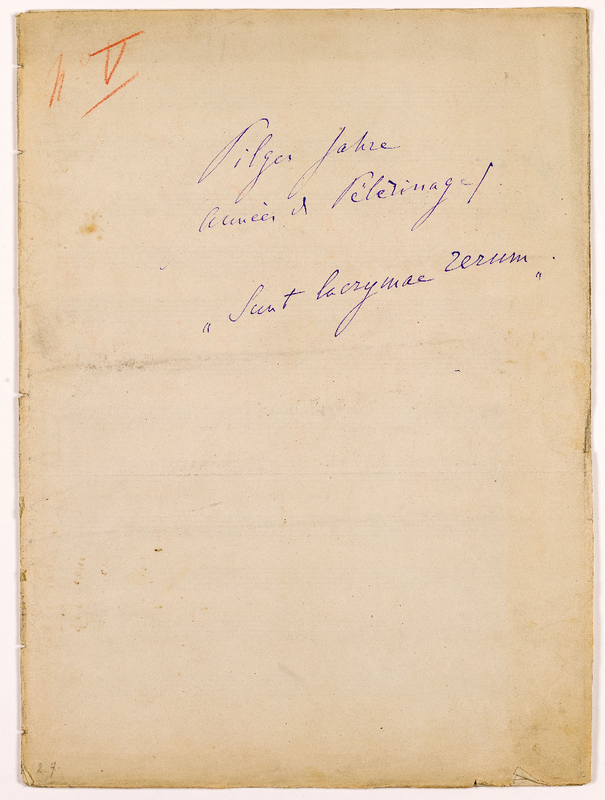 No V
Pilger Jahre
Années de Pèlérinages
„ Sunt lacrymae rerum "
2.7.